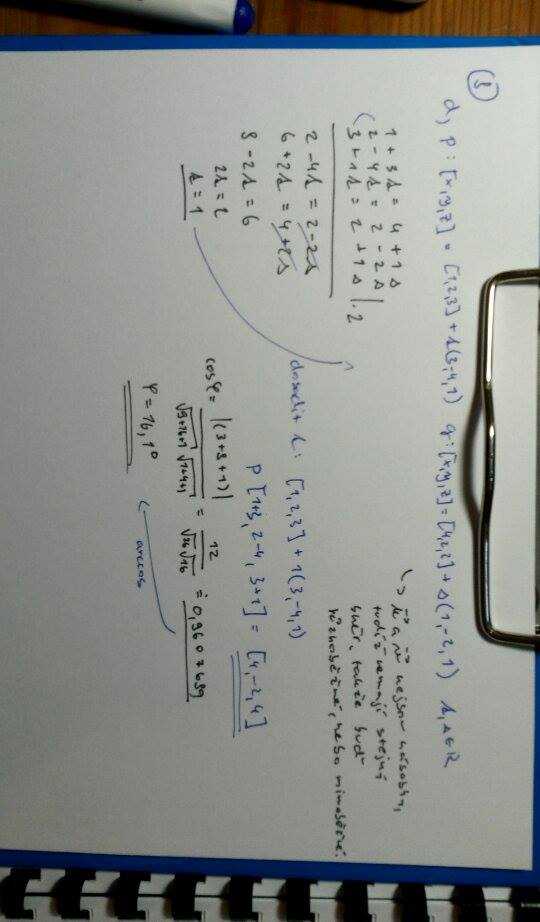 8
d, p: [x,y,z] = [1,2,3] + t(3,-4,1) q: [x,y,z] = [4,2,2] + s(1,-2,1) t,s∈R
↳ u⃗ a v⃗ nejsou násobky,
tudíž nemají stejný
směr, takže buď
různoběžné, nebo mimoběžné.
1 + 3t = 4 + 1s
2 - 4t = 2 - 2s
3 + 1t = 2 + 1s |·2
2 - 4t = 2 - 2s
6 + 2t = 4 + 2s
8 - 2t = 6
2t = 2
t = 1
dosadit t: [1,2,3] + 1(3,-4,1)
P [1+3, 2-4, 3+1] = [4,-2,4]
cos φ = |(3+8+1)| / √9+16+1 √1+4+1 = 12 / √26 √16 ≐ 0,9607689
arccos
φ = 16,1°